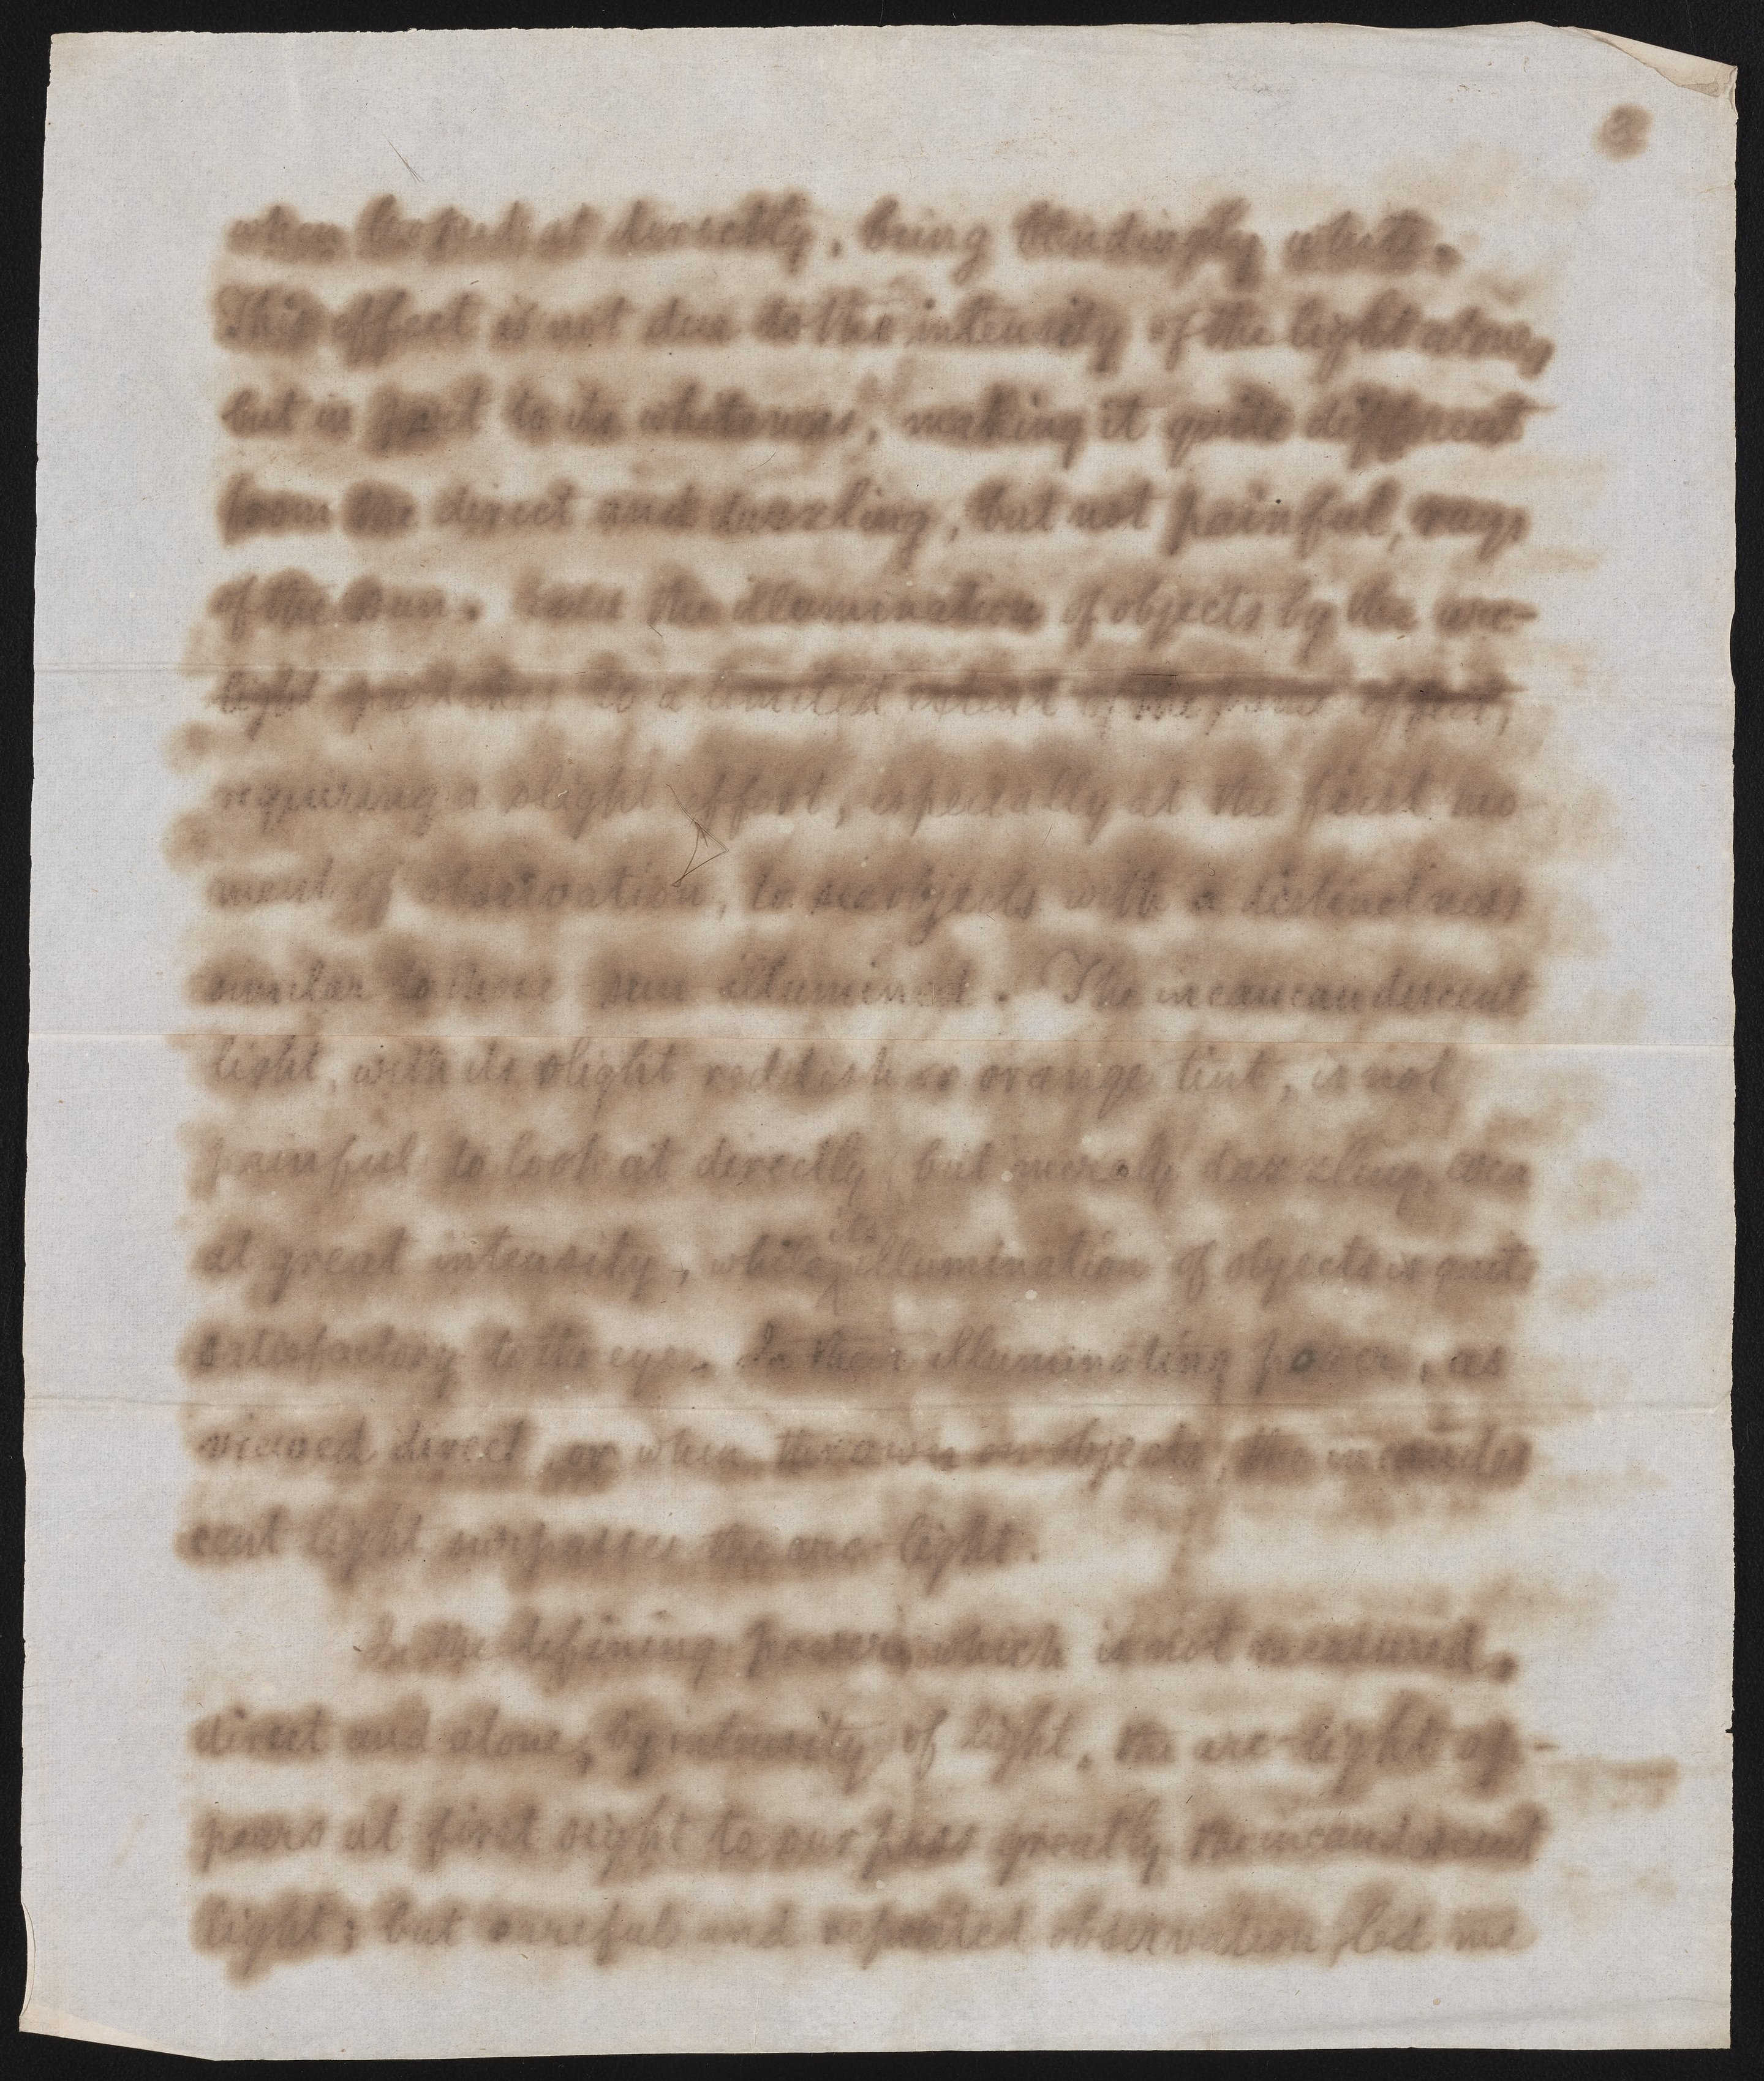 when looked at directly, being blindingly white.
This effect is not due to the intensity of the light alone,
but in part to its whiteness, making it quite different
from the direct and dazzling, but not painful, rays
of the sun. the illumination of objects by the arc-
light to a limited extent of the same effect,
requiring a slight effort, especially at the first mo-
ment of observation, to see objects with a distinctness
similar to those sun illumined. The incancandescent
light, with its slight reddish or orange tint, is not
painful to look at directly, but merely dazzling, even
at great intensity, while its illumination of objects is quite
satisfactory to the eye. In their illuminating power, as
viewed direct, or when thrown on objects, the incandes
cent light surpasses the arc-light.
In the defining power, which is not measured,
direct and alone, by intensity of light, the arc-light ap-
pears at first sight to surpass greatly the incandescent
light; but careful and repeated observation led me